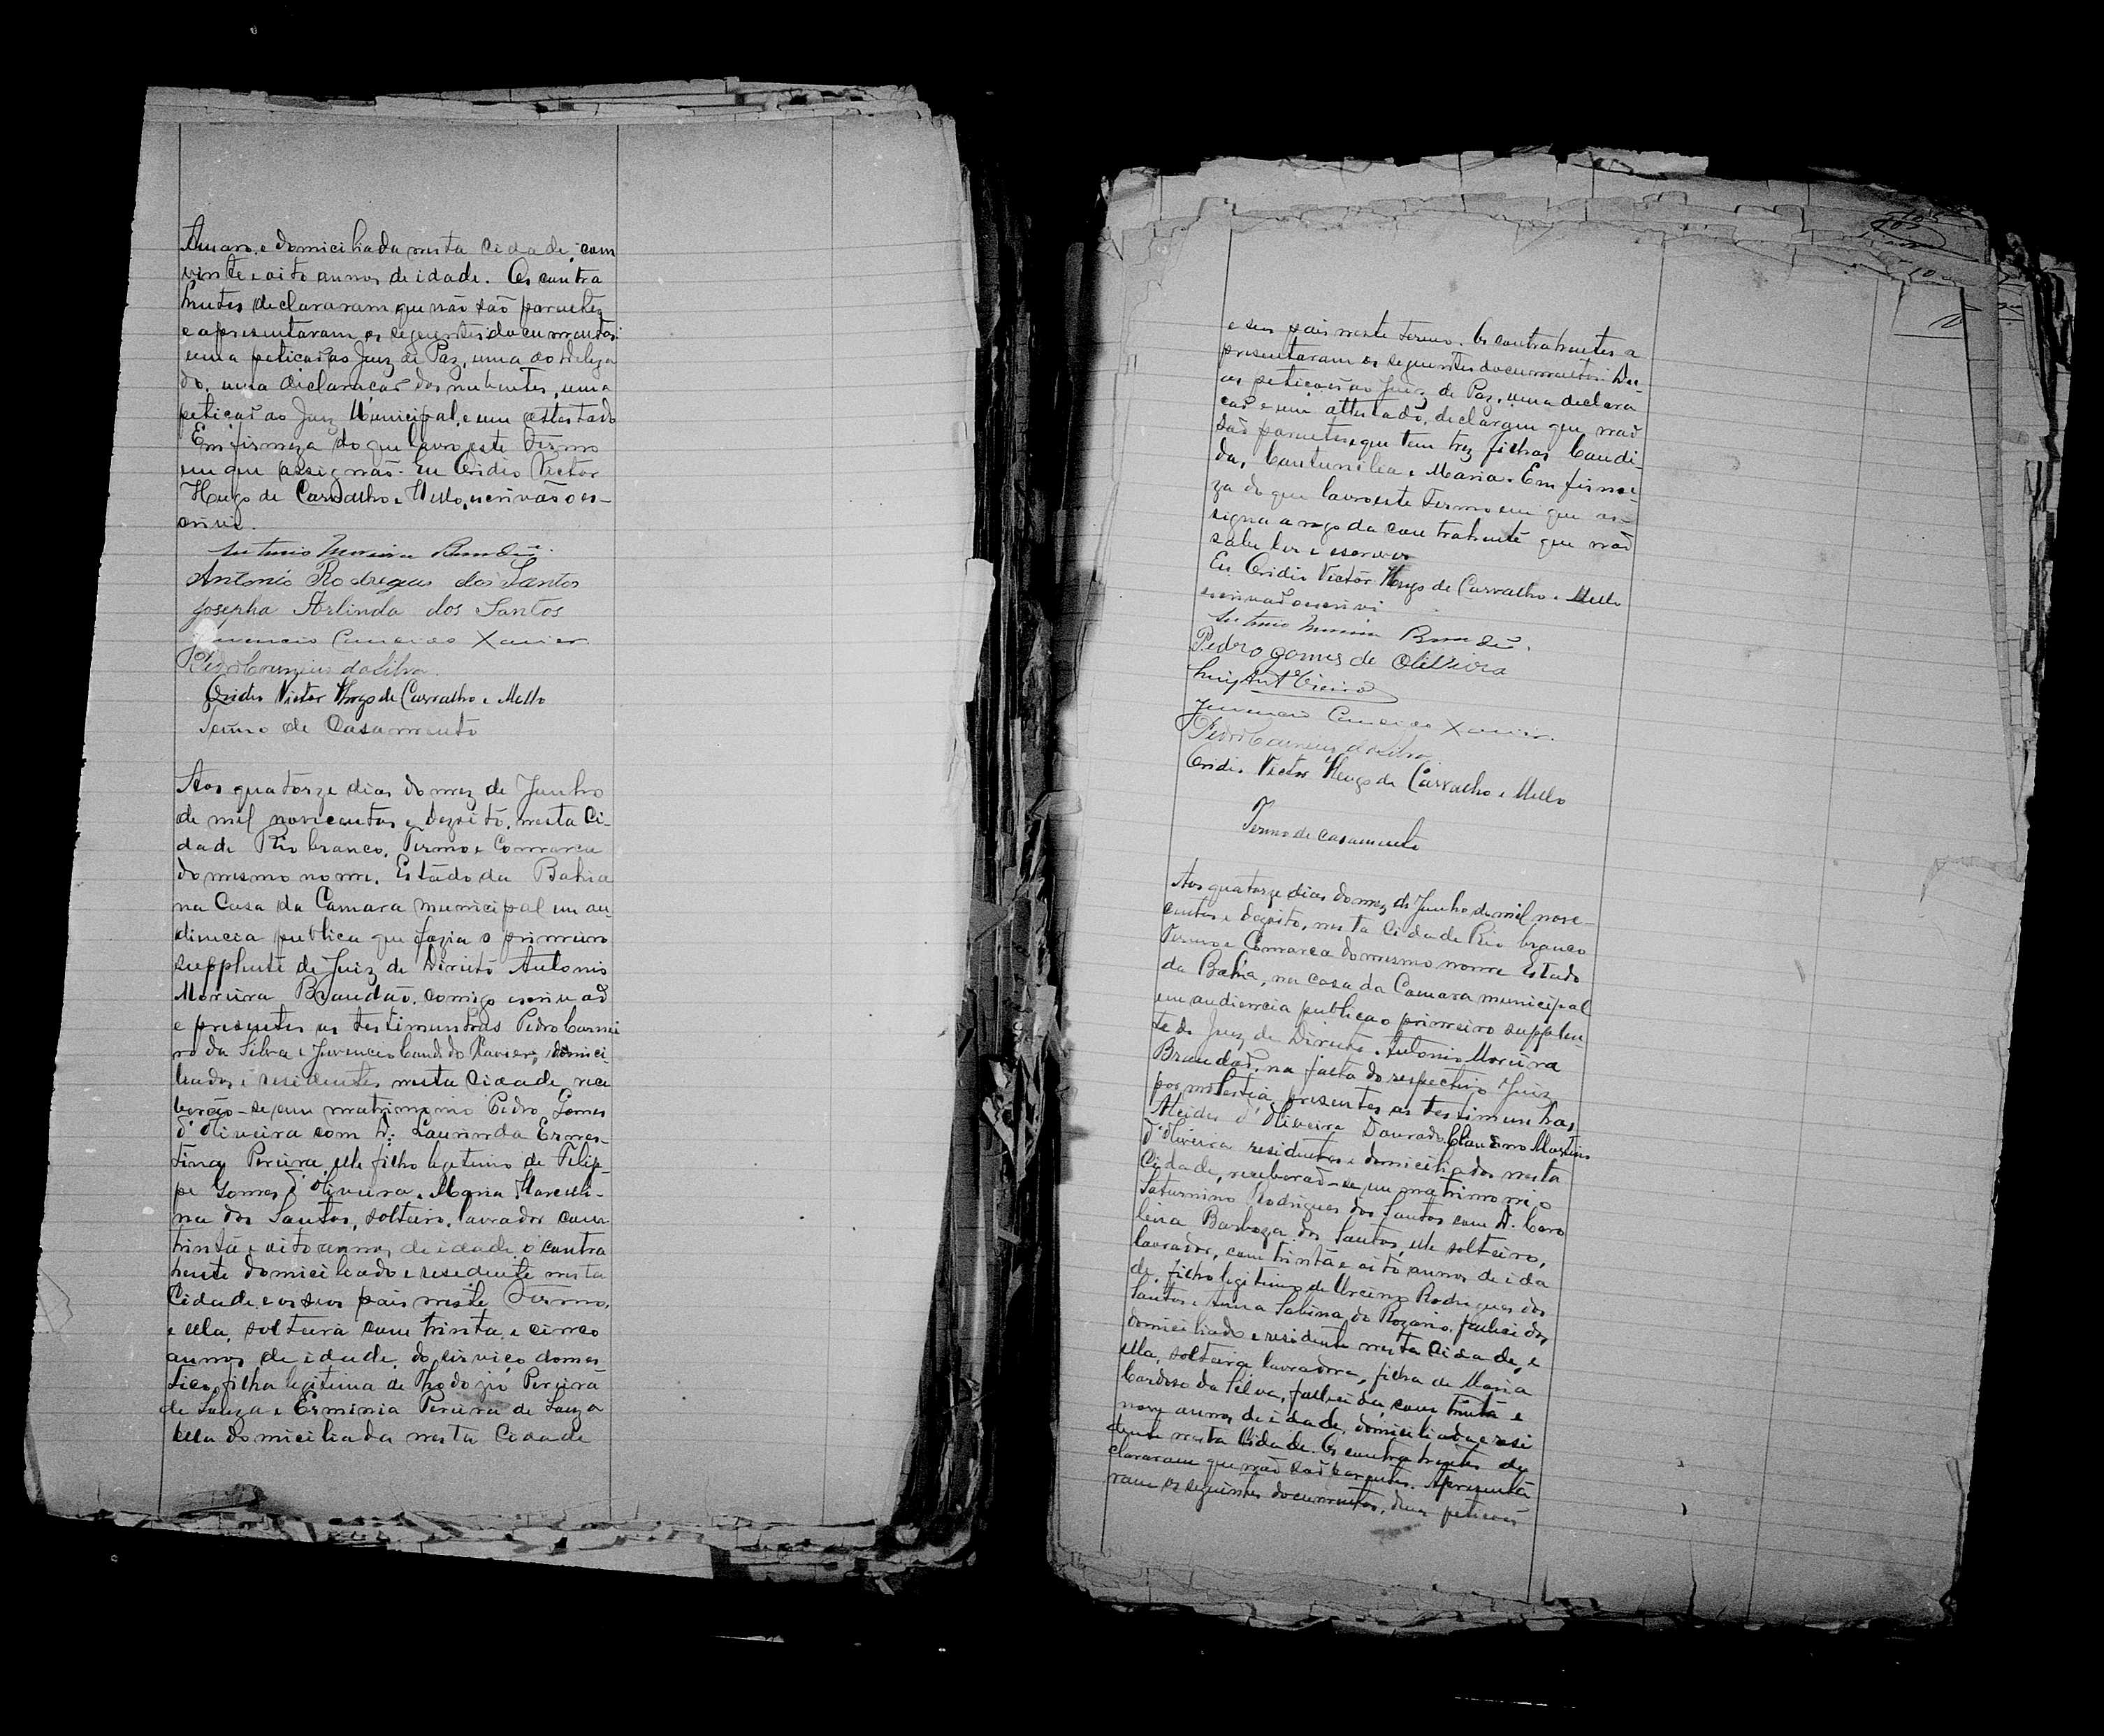 Amaro, e domiciliada nesta Cidade, com
vinte e oito annos de idade. Os contra
hentes declararam que não são parentes
e apresentaram os seguentes documentos:
uma peticão ao Juiz de Paz, uma ao delega
do, uma declaracão dos nubentes, uma
peticão ao Juiz Municipal, e um attestado
Em firmeza do que lavro este Termo
em que assignão. Eu Ovidio Victor
Hugo de Carvalho e Mello, escrivão o es-
crivi.
Antonio Moreira Brandão.
Antonio Rodrigues dos Santos
Josepha Arlinda dos Santos
Juvencio Candido Xavier
Pedro Carneiro da Silva
Ovidio Victor Hugo de Carvalho e Mello
Termo de Casamento
Aos quatorze dias do mez de Junho
de mil novicentos e dezoito, nesta Ci-
dade Rio branco, Termo e Comarca
do mesmo nome, Estado da Bahia
na Casa da Camara municipal em au-
diencia publica que fazia o primeiro
supplente de Juiz de Direito Antonio
Moreira Brandão, comigo escrivão
e presentes as testimunhas Pedro Carnei
ro da Silva e Juvencio Candido Xavier, domici
liados e residentes nesta Cidade, rece
berão-se em matrimonio Pedro Gomes
d'Oliveira com D. Laurinda Ernes-
tina Pereira, elle filho legitimo de Felip-
pe Gomes d'Oliveira e Maria Marculi-
na dos Santos, solteiro, lavrador com
trinta e oito annos de idade o contra
hente domiciliado e residente nesta
Cidade e os seus pais neste Termo,
e ella, solteira com trinta e cinco
annos de idade, do serviço domes
tico, filha legitima de Thodozio Pereira
de Souza e Erminia Pereira de Souza
ella domiciliada nesta Cidade
e seus pais neste Termo. Os contrahentes a
presentaram os seguentes documentos: Du
as peticões ao Juiz de Paz, uma declara
cão e um attestado, declaram que não
são parentes e que tem trez filhos Candi-
da, Cantunilia e Maria. Em firme-
za do que lavro este Termo em que as-
signa a rogo da contrahente que não
sabe ler e escrever
Eu Ovidio Victor Hugo de Carvalho e Mello
escrivão o escrivi
Antonio Moreira Brandão.
Pedro gomes de Oliveira
Luiz Antº Vieira
Juvencio Candido Xavier.
Pedro Carneiro da Silva
Ovidio Victor Hugo de Carvalho e Mello
Termo de casamento
Aos quatorze dias do mez de Junho de mil nove-
centos e dezoito, nesta Cidade Rio branco
Termo e Comarca do mesmo nome Estado
da Bahia, na casa da Camara municipal
em audiencia publica o primeiro supplen-
te do Juiz de Direito Antonio Moreira
Brandão, na falta do respectivo Juiz
por molestia, presentes as testimunhas
Alcides d'Oliveira Dourado, Claudimo Martins
d'Oliveira residentes e domiciliados nesta
Cidade, receberão-se em matrimonio
Saturnino Rodrigues dos Santos com D. Caro
lina Barboza dos Santos, elle solteiro,
lavrador, com trinta e oito annos de ida
de, filho legitimo de Urcino Rodrigues dos
Santos e Anna Sabina do Rozario, fallecidos,
domiciliado e residente nesta Cidade, e
ella, solteira lavradora, filha de Maria
Cardoso da Silva, fallecida, com trinta e
nove annos de idade, domiciliada e resi
dente nesta Cidade. Os contrahentes de
clararam que não são parentes. Apresentá
ram os seguintes documentos, duas peticões